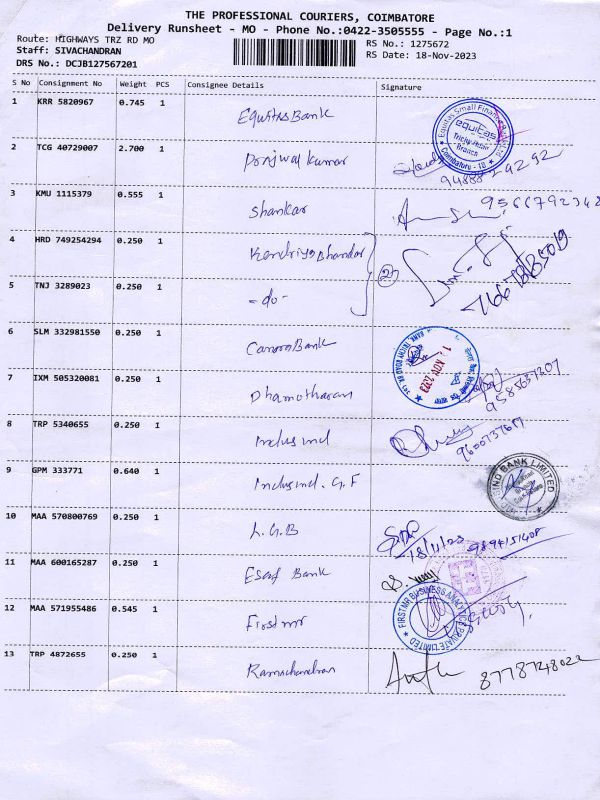 THE PROFESSIONAL COURIERS, COIMBATORE
Delivery Runsheet - MO - Phone No.:0422-3505555 - Page No.:1
Route: HIGHWAYS TRZ RD MO
RS No.: 1275672
Staff: SIVACHANDRAN
RS Date: 18-Nov-2023
DRS No.: DCJB127567201
S No Consignment No Weight PCS Consignee Details Signature
1 KRR 5820967 0.745 1 Equitas Bank
Equitas Small Finance Bank Ltd
equitas
Branch
Coimbatore - 18
2 TCG 40729007 2.700 1 Prajwal Kumar
94888 29292
3 KMU 1115379 0.555 1 Shankar
9566792348
4 HRD 749254294 0.250 1 Kendriya Bhandar
2
5 TNJ 3289023 0.250 1 -do-
6 SLM 332981550 0.250 1 Canara Bank
NOV
7 IXM 505320081 0.250 1 Dhamotharan
9585637207
8 TRP 5340655 0.250 1 Indusind
9600737617
9 GPM 333771 0.640 1 Indusind. G.F
IND BANK LIMITED
10 MAA 570800769 0.250 1 L.G.B
18/11/23 9894151408
11 MAA 600165287 0.250 1 Esaf Bank
12 MAA 571955486 0.545 1 First mr
FIRST MR BUSINESS ANALYTICS PRIVATE LIMITED
13 TRP 4872655 0.250 1 Ramachandran
8778748022